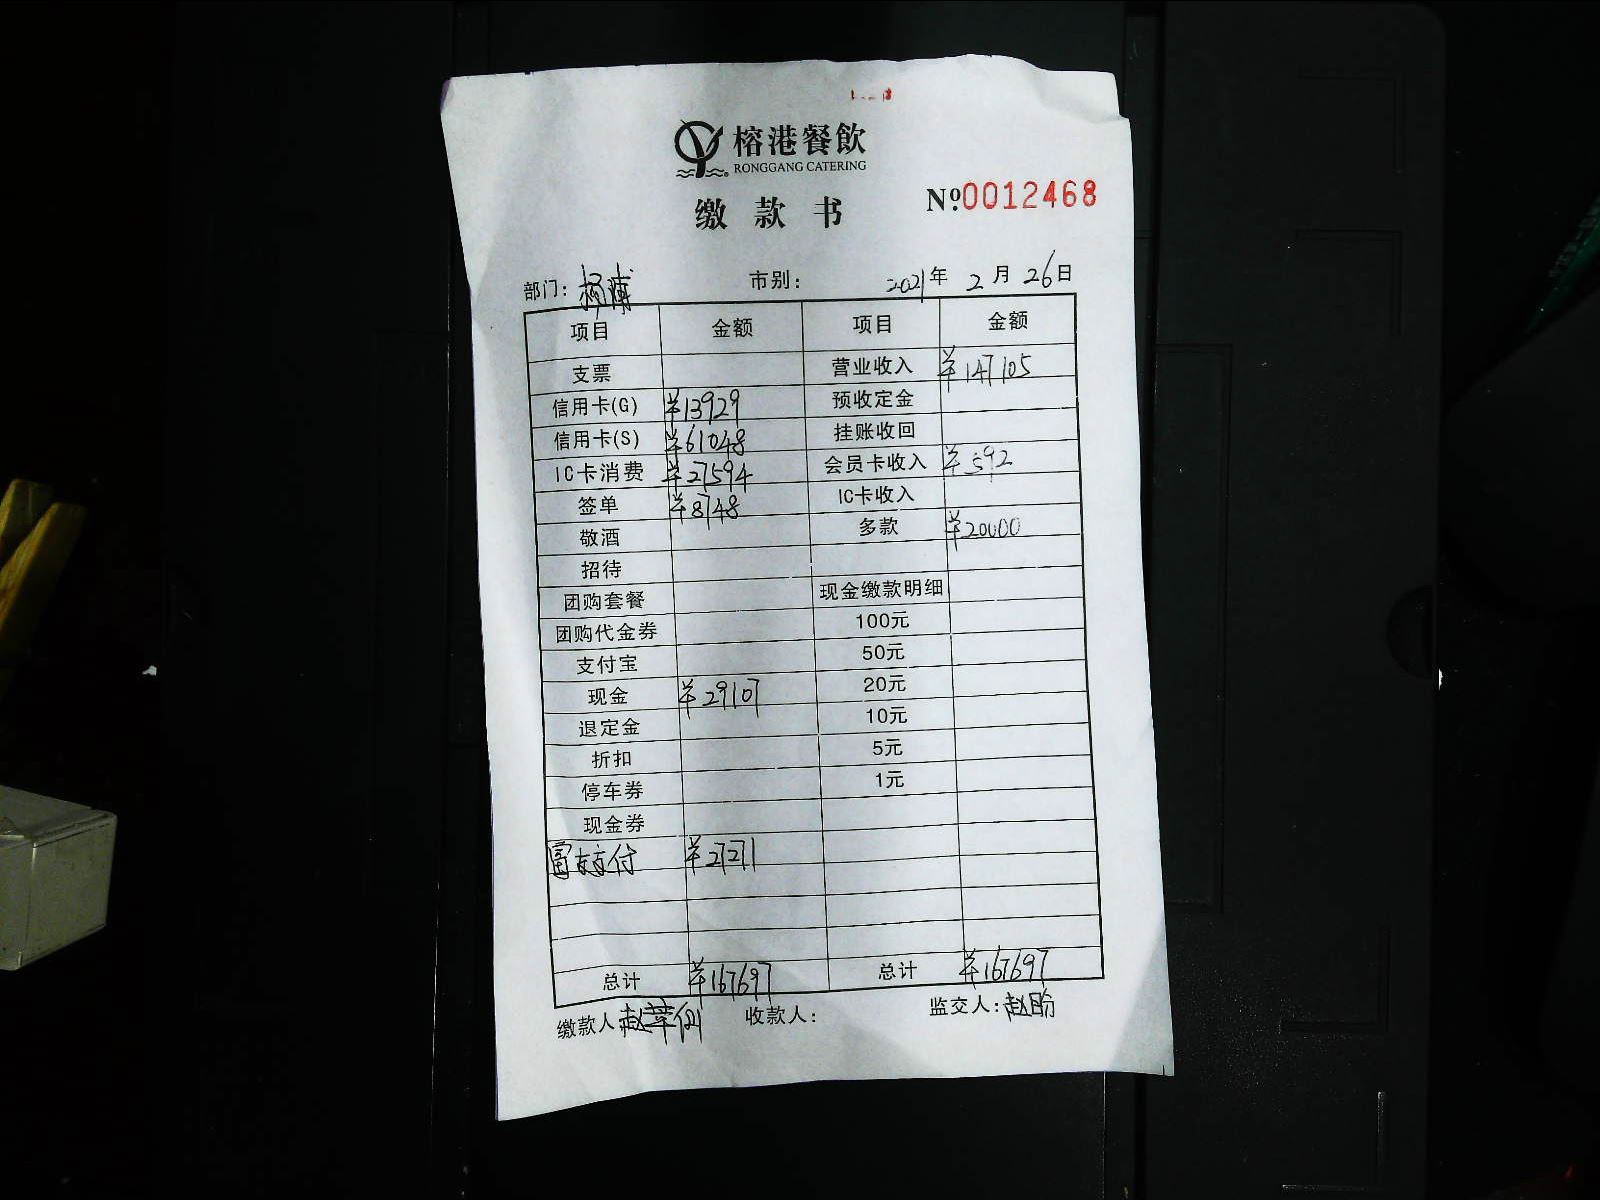 榕港餐飲
RONGGANG CATERING
缴款书
№0012468
部门: 市别: 2021年2月26日
项目 金额 项目 金额
支票 营业收入 ¥147105
信用卡(G) ¥13929 预收定金
信用卡(S) ¥61048 挂账收回
IC卡消费 ¥27594 会员卡收入 ¥592
签单 ¥8748 IC卡收入
敬酒 多款 ¥20000
招待
团购套餐 现金缴款明细
团购代金券 100元
支付宝 50元
现金 ¥29107 20元
退定金 10元
折扣 5元
停车券 1元
现金券
富友支付 ¥27271
总计 ¥167697 总计 ¥167697
缴款人: 收款人: 监交人: 赵盼